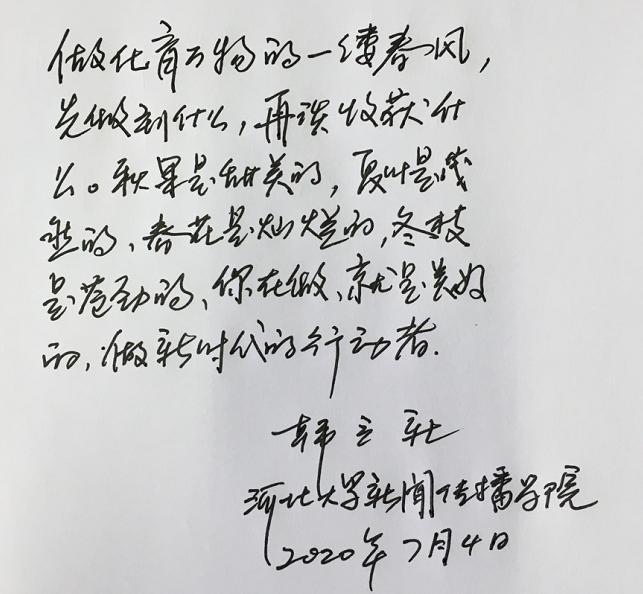 做化育万物的一缕春风，
先做到什么，再谈收获什
么。秋果是甜美的，夏叶是茂
盛的、春花是灿烂的，冬枝
是苍劲的、你在做、就是美好
的，做新时代的行动者．
韩立新
河北大学新闻传播学院
2020年7月4日